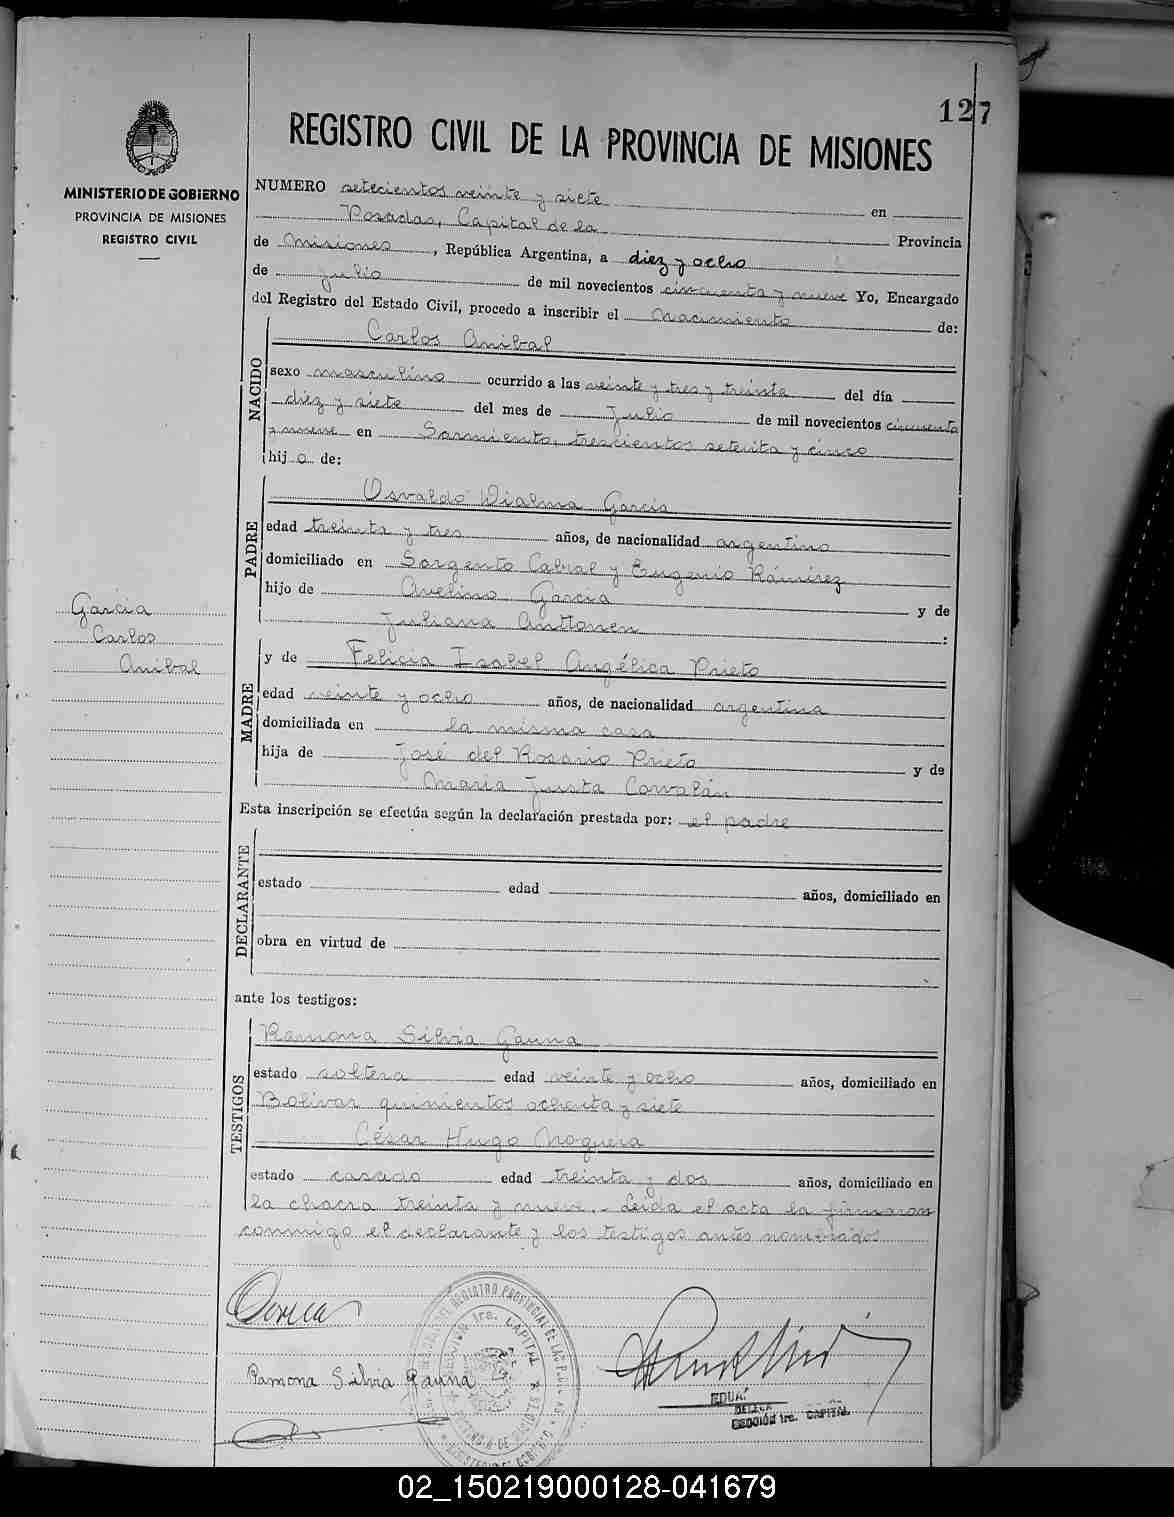 127
REGISTRO CIVIL DE LA PROVINCIA DE MISIONES
MINISTERIO DE GOBIERNO
PROVINCIA DE MISIONES
REGISTRO CIVIL
NUMERO setecientos veinte y siete en
Posadas, Capital de la Provincia
de Misiones, República Argentina, a diez y ocho
de julio de mil novecientos cincuenta y nueve Yo, Encargado
del Registro del Estado Civil, procedo a inscribir el nacimiento de:
NACIDO
Carlos Anibal
sexo masculino ocurrido a las veinte y tres y treinta del día
diez y siete del mes de julio de mil novecientos cincuenta
y nueve en Sarmiento, trescientos setenta y cinco
hij o de:
PADRE
Osvaldo Dialma García
edad treinta y tres años, de nacionalidad argentino
domiciliado en Sargento Cabral y Eugenio Ramírez
hijo de Avelino García y de
Juliana Anttonen :
García
Carlos
Anibal
MADRE
y de Felicia Isabel Angélica Prieto
edad veinte y ocho años, de nacionalidad argentina
domiciliada en la misma casa
hija de José del Rosario Prieto y de
María Justa Corvalán
Esta inscripción se efectúa según la declaración prestada por: el padre
DECLARANTE
estado edad años, domiciliado en
obra en virtud de
ante los testigos:
TESTIGOS
Ramona Silvia Gauna
estado soltera edad veinte y ocho años, domiciliado en
Bolivar quinientos ochenta y siete
César Hugo Noguera
estado casado edad treinta y dos años, domiciliado en
la chacra treinta y nueve.- Leída el acta la firmaron
conmigo el declarante y los testigos antes nombrados
Ramona Silvia Gauna
SECCIÓN 1ra. CAPITAL
02_150219000128-041679